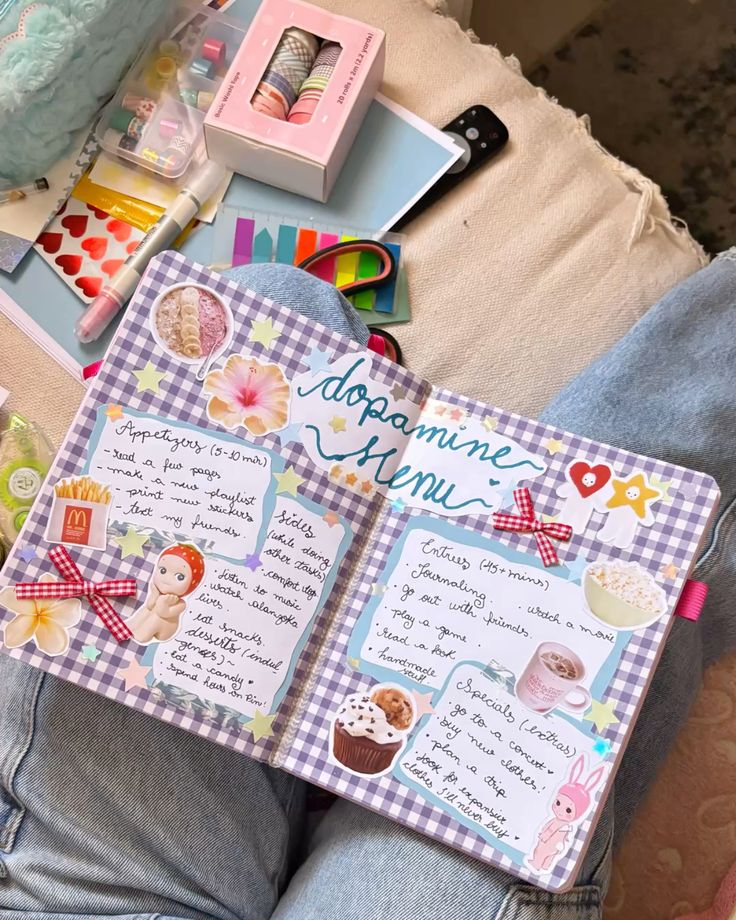 Basic Washi Tape
20 rolls x 2m (2.2 yards)
dopamine
Menu
Appetizers (5-10min)
- read a few pages
- make a new playlist
- print new stickers
- text my friends
Sides
(while doing
other tasks)
- comfort
lives.
- listen to music
- watch alangoka
- eat snacks.
desserts (indul
gences) ~
- eat a candy
- spend hours on Pin
Entrees (45+mins)
· Journaling
· watch a movie
· go out with friends.
· play a game
· read a book
· handmade
Specials (extras)
· go to a concert
· buy new clothes!
· plan a trip
· look for expansive
clothes I'll never buy